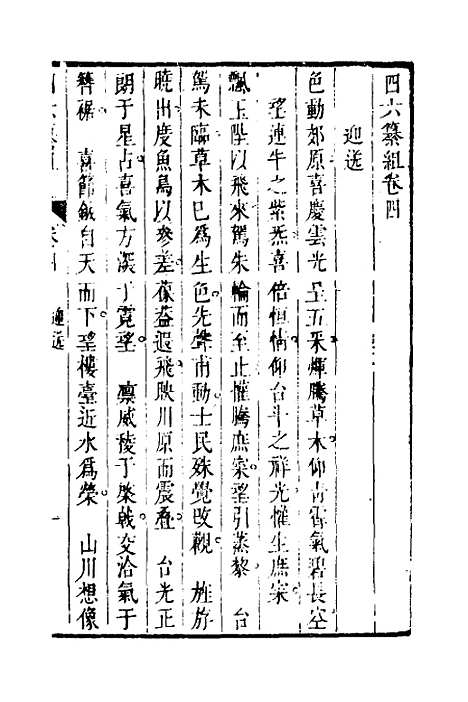 四六纂組卷四
迎送
色動郊原喜慶雲光呈五采煇騰草木仰靑霄氣碧長空
望連牛之紫炁喜倍恒情仰台斗之祥光懽生庶寀
飄玉陛以飛來駕朱輪而至止懽騰庶寀望引蒸黎 台
駕未臨草木已爲生色先聲甫動士民殊覺改觀 旌旂
曉出度魚鳥以參差葆蓋遐飛映川原而震疊 台光正
朗于星占喜氣方深于霓望 凛威稜于棨戟交洽氣于
簪裾 喜節鉞自天而下望樓臺近水爲榮 山川想像
迎送